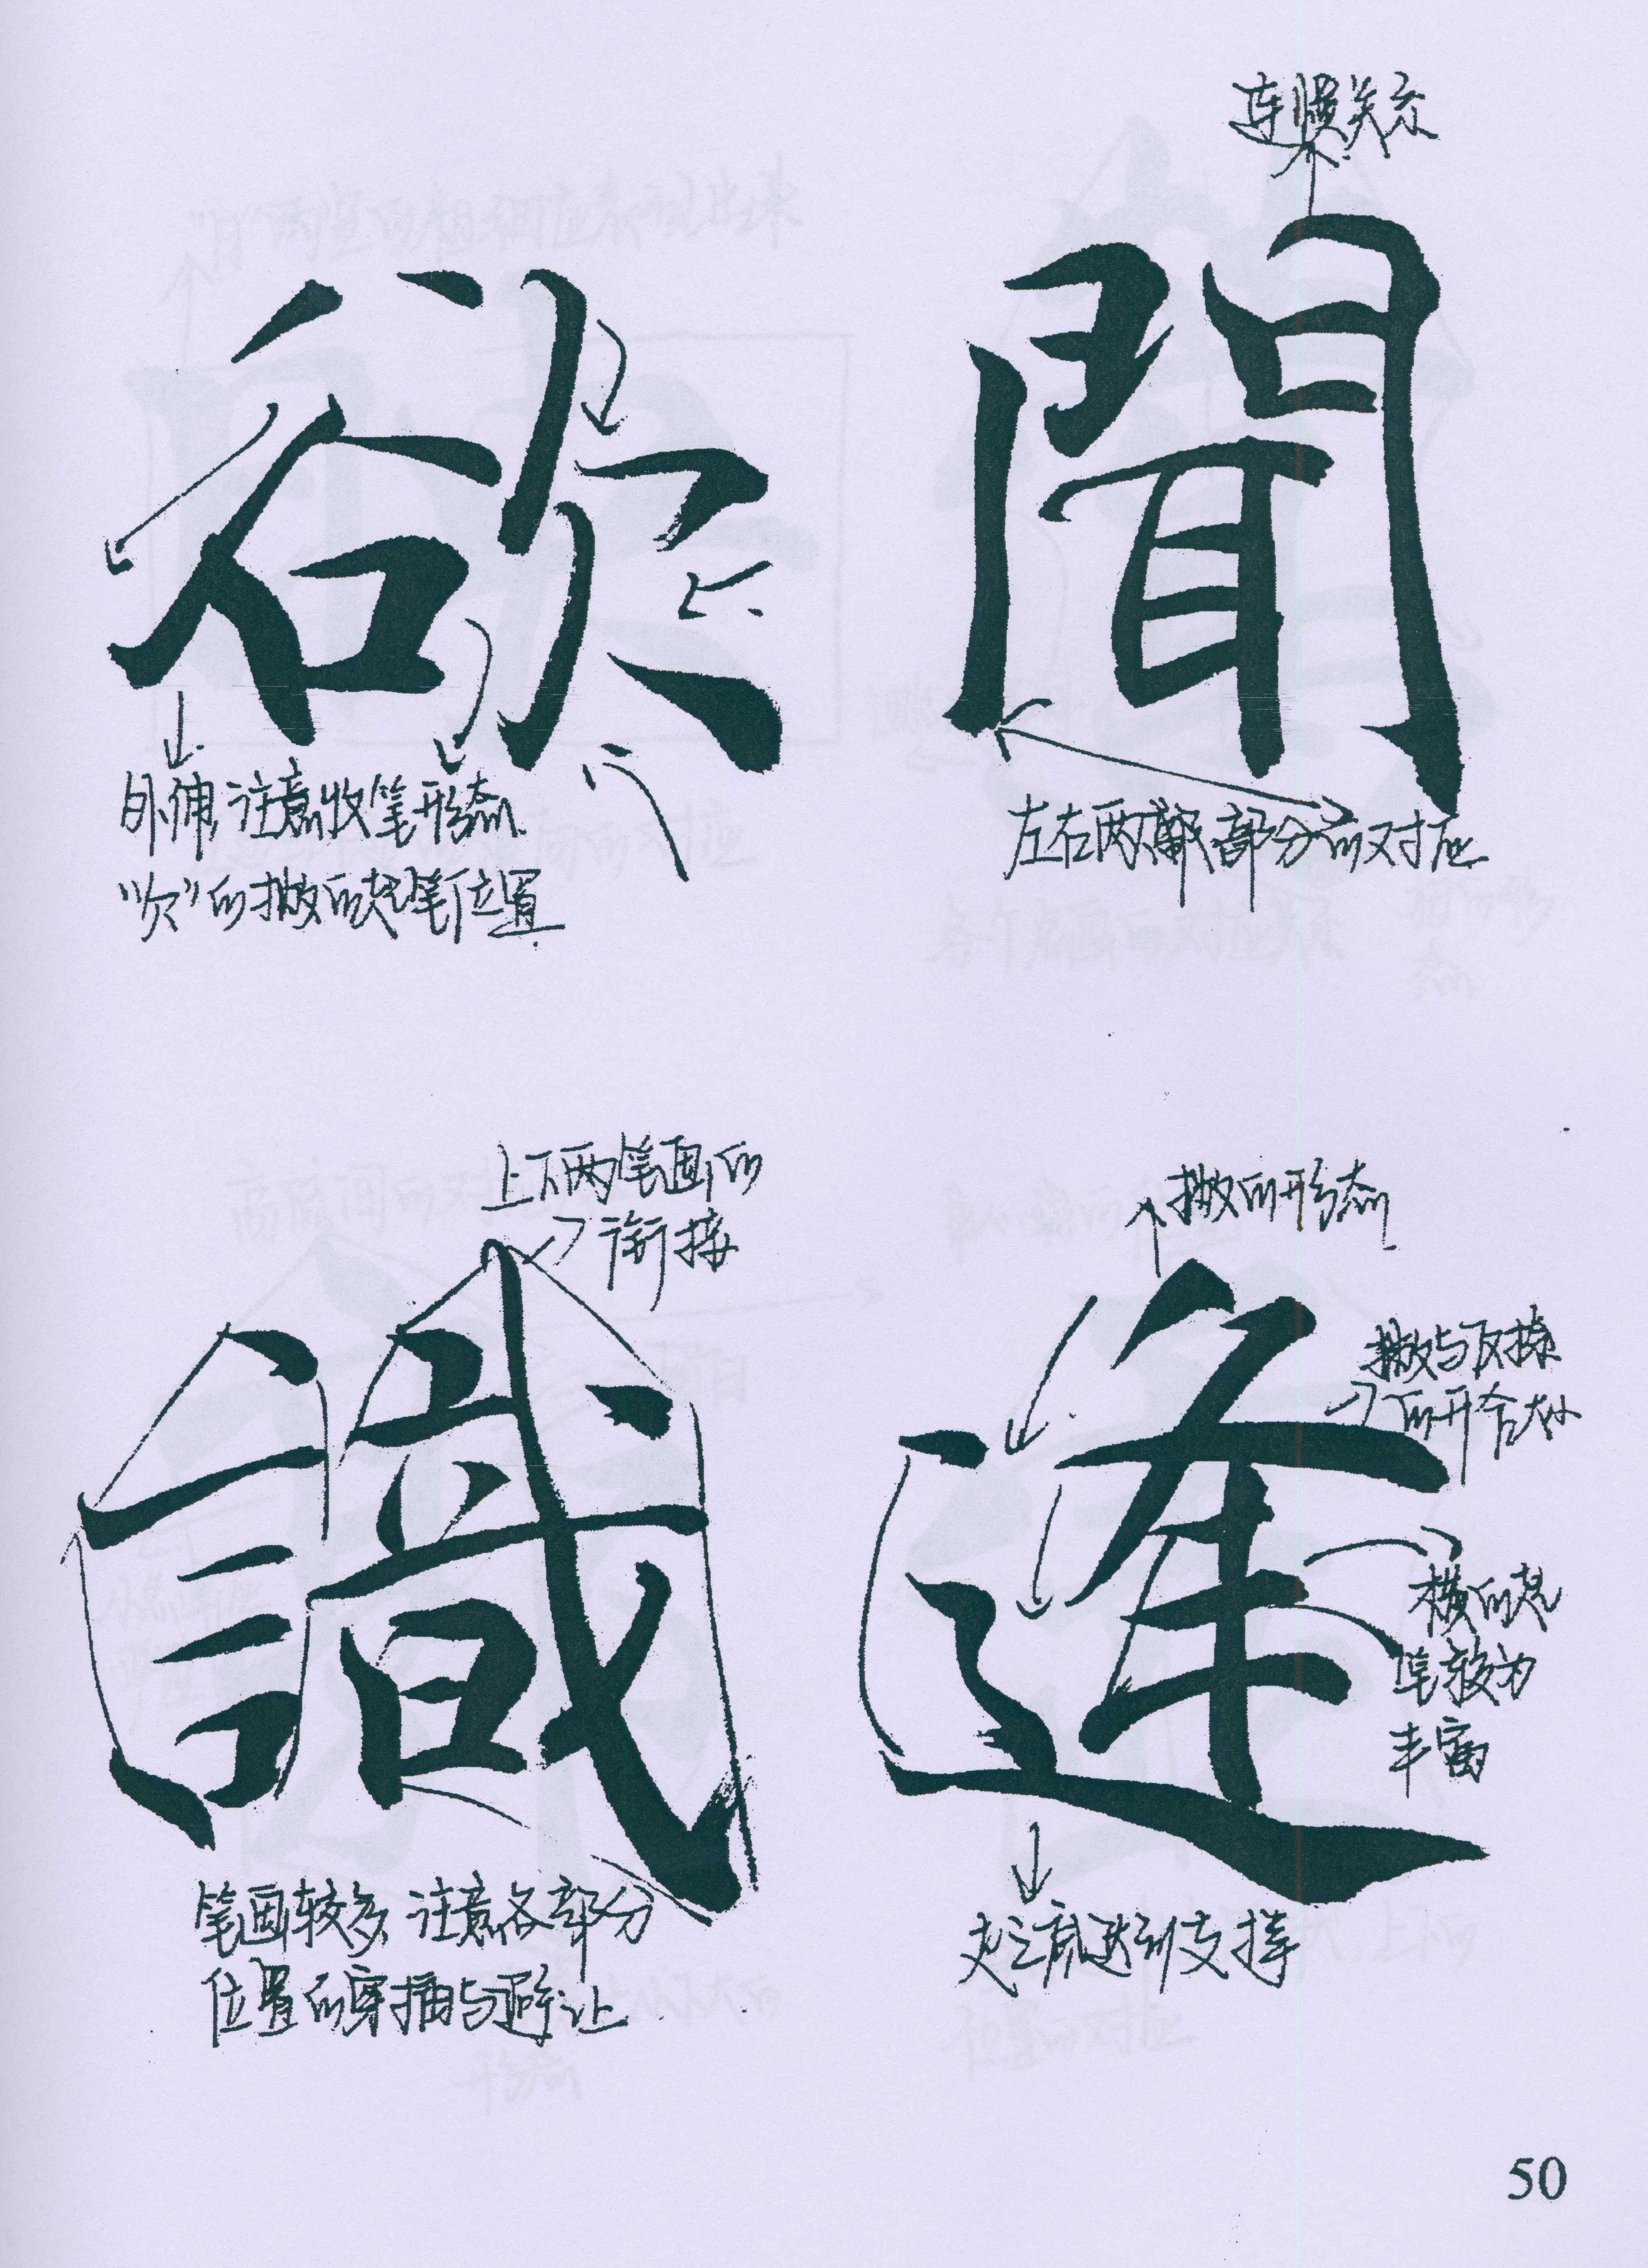 欲
外伸,注意收笔形态.
“欠”的撇的起笔位置.
连贯关系
聞
左右两部分的对应
上下两笔画的
衔接
識
笔画较多,注意各部分
位置的穿插与避让
撇的形态
逢
撇与反捺
的开合大小
横的起
笔较为
丰富
走之底达到支撑
50